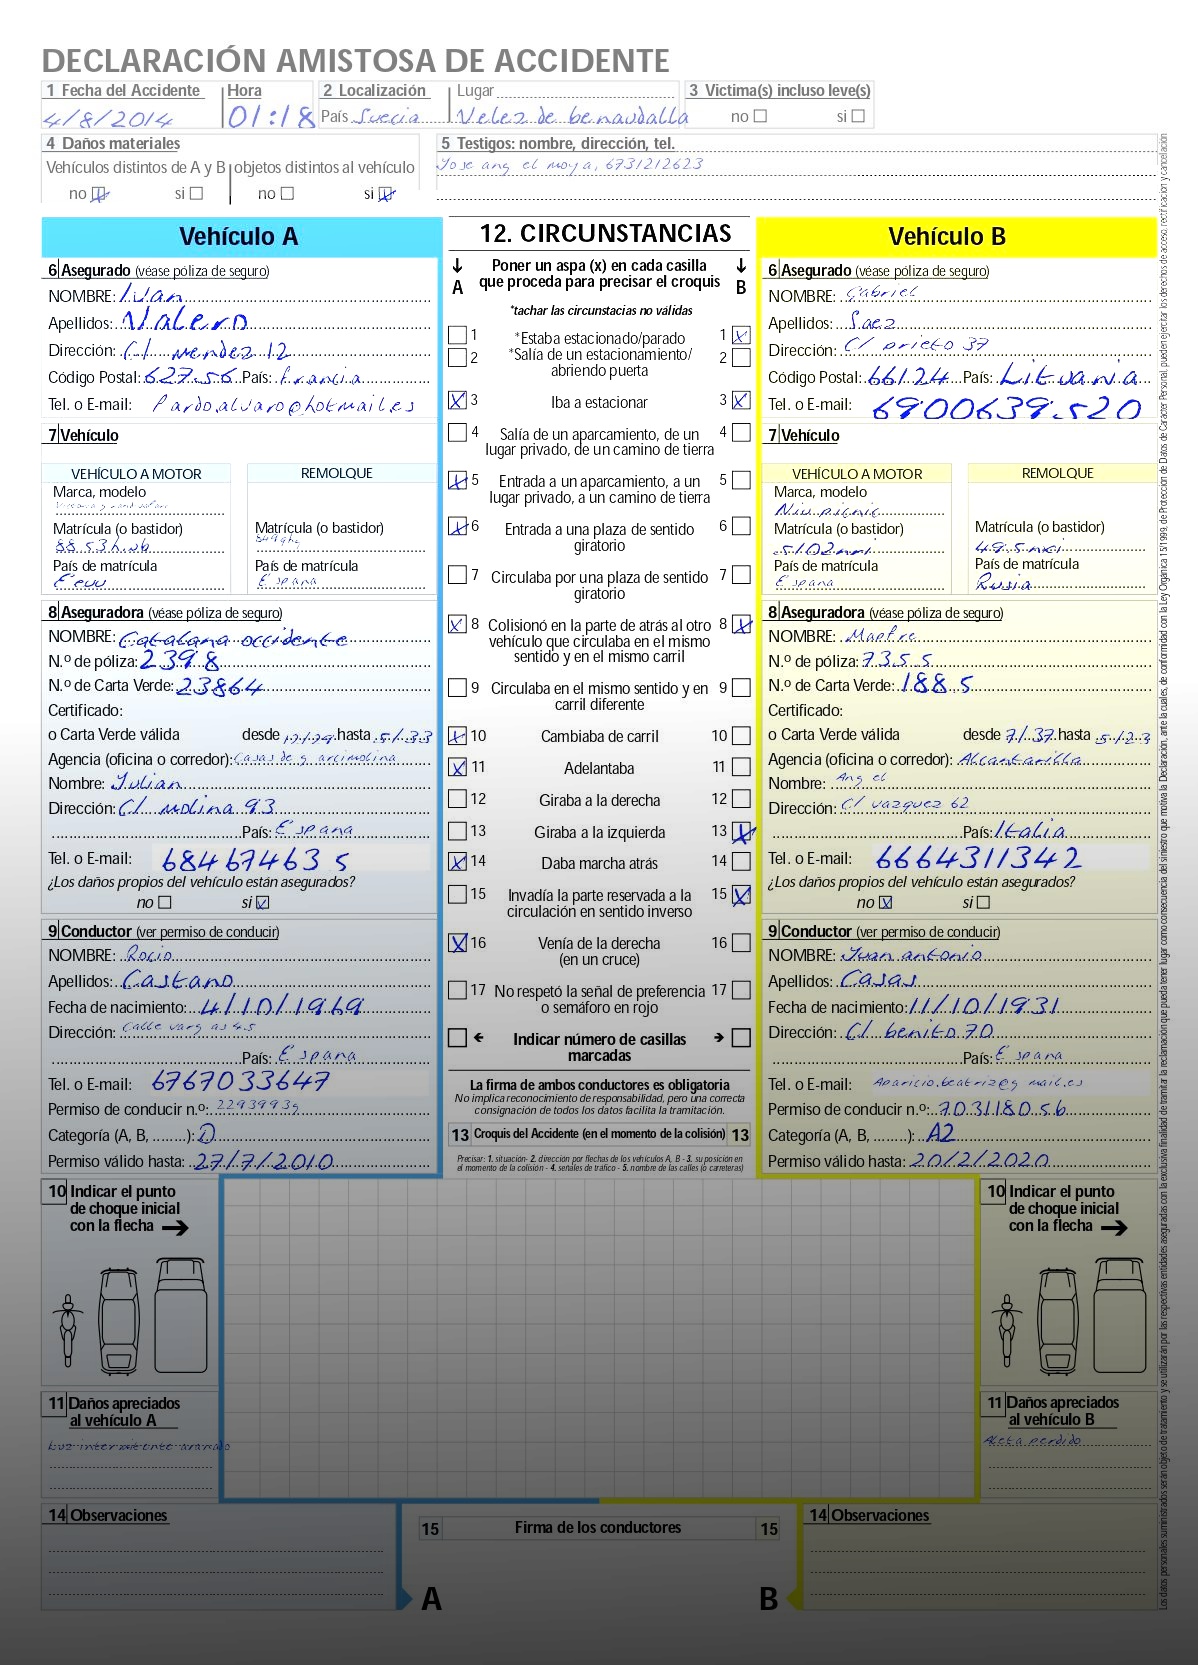 DECLARACIÓN AMISTOSA DE ACCIDENTE
1 Fecha del Accidente Hora 2 Localización Lugar 3 Victima(s) incluso leve(s)
4/8/2014 01:18 País Suecia Velez de benaudalla no si
4 Daños materiales 5 Testigos: nombre, dirección, tel.
Vehículos distintos de A y B objetos distintos al vehículo Jose ang el moya, 6731212623
no si no si
Vehículo A
6 Asegurado (véase póliza de seguro)
NOMBRE: Ivan
Apellidos: Valero
Dirección: C/ mendez 12
Código Postal: 627.56 País: Francia
Tel. o E-mail: Pardo.alvaro@hotmail.es
7 Vehículo
VEHÍCULO A MOTOR REMOLQUE
Marca, modelo
Matrícula (o bastidor) Matrícula (o bastidor)
País de matrícula País de matrícula
Eeuu Espana
8 Aseguradora (véase póliza de seguro)
NOMBRE: Catalana occidente
N.º de póliza: 2398
N.º de Carta Verde: 23864
Certificado:
o Carta Verde válida desde hasta 5/.33
Agencia (oficina o corredor):
Nombre: Julian
Dirección: C/ molina 93
País: Espana
Tel. o E-mail: 684674635
¿Los daños propios del vehículo están asegurados?
no si
9 Conductor (ver permiso de conducir)
NOMBRE: Rocio
Apellidos: Castano
Fecha de nacimiento: 4/10/1969
Dirección: Calle varg as 45
País: Espana
Tel. o E-mail: 6767033647
Permiso de conducir n.º: 2293993g
Categoría (A, B, ........): D
Permiso válido hasta: 27/7/2010
10 Indicar el punto
de choque inicial
con la flecha
11 Daños apreciados
al vehículo A
Luz intermitente aranado
14 Observaciones
12. CIRCUNSTANCIAS
A Poner un aspa (x) en cada casilla B
que proceda para precisar el croquis
*tachar las circunstacias no válidas
1 *Estaba estacionado/parado 1
2 *Salía de un estacionamiento/ 2
abriendo puerta
3 Iba a estacionar 3
4 Salía de un aparcamiento, de un 4
lugar privado, de un camino de tierra
5 Entrada a un aparcamiento, a un 5
lugar privado, a un camino de tierra
6 Entrada a una plaza de sentido 6
giratorio
7 Circulaba por una plaza de sentido 7
giratorio
8 Colisionó en la parte de atrás al otro 8
vehículo que circulaba en el mismo
sentido y en el mismo carril
9 Circulaba en el mismo sentido y en 9
carril diferente
10 Cambiaba de carril 10
11 Adelantaba 11
12 Giraba a la derecha 12
13 Giraba a la izquierda 13
14 Daba marcha atrás 14
15 Invadía la parte reservada a la 15
circulación en sentido inverso
16 Venía de la derecha 16
(en un cruce)
17 No respetó la señal de preferencia 17
o semáforo en rojo
Indicar número de casillas
marcadas
La firma de ambos conductores es obligatoria
No implica reconocimiento de responsabilidad, pero una correcta
consignación de todos los datos facilita la tramitación.
13 Croquis del Accidente (en el momento de la colisión) 13
Precisar: 1. situación- 2. dirección por flechas de los vehículos A, B - 3. su posición en
el momento de la colisión - 4. señales de tráfico - 5. nombre de las calles (o carreteras)
15 Firma de los conductores 15
A B
Vehículo B
6 Asegurado (véase póliza de seguro)
NOMBRE: Gabriel
Apellidos: Saez
Dirección: C/ prieto 37
Código Postal: 66124 País: Lituania
Tel. o E-mail: 6900639520
7 Vehículo
VEHÍCULO A MOTOR REMOLQUE
Marca, modelo
Matrícula (o bastidor) Matrícula (o bastidor)
País de matrícula País de matrícula
Espana Rusia
8 Aseguradora (véase póliza de seguro)
NOMBRE: Mapfre
N.º de póliza: 7355
N.º de Carta Verde: 1885
Certificado:
o Carta Verde válida desde 7/.37 hasta 5/.23
Agencia (oficina o corredor): Alcantarilla
Nombre: Ang el
Dirección: C/ vazquez 62
País: Italia
Tel. o E-mail: 6664311342
¿Los daños propios del vehículo están asegurados?
no si
9 Conductor (ver permiso de conducir)
NOMBRE: Juan antonio
Apellidos: Casas
Fecha de nacimiento: 11/10/1931
Dirección: C/ benito 70
País: Espana
Tel. o E-mail: Aparicio.beatriz@g mail.es
Permiso de conducir n.º: 703118056
Categoría (A, B, ........): A2
Permiso válido hasta: 20/2/2020
10 Indicar el punto
de choque inicial
con la flecha
11 Daños apreciados
al vehículo B
Aleta perdido
14 Observaciones